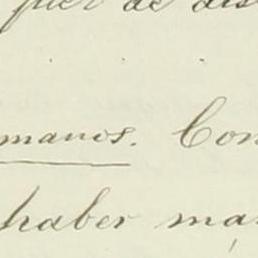 de dis
manos. Con
haber ma